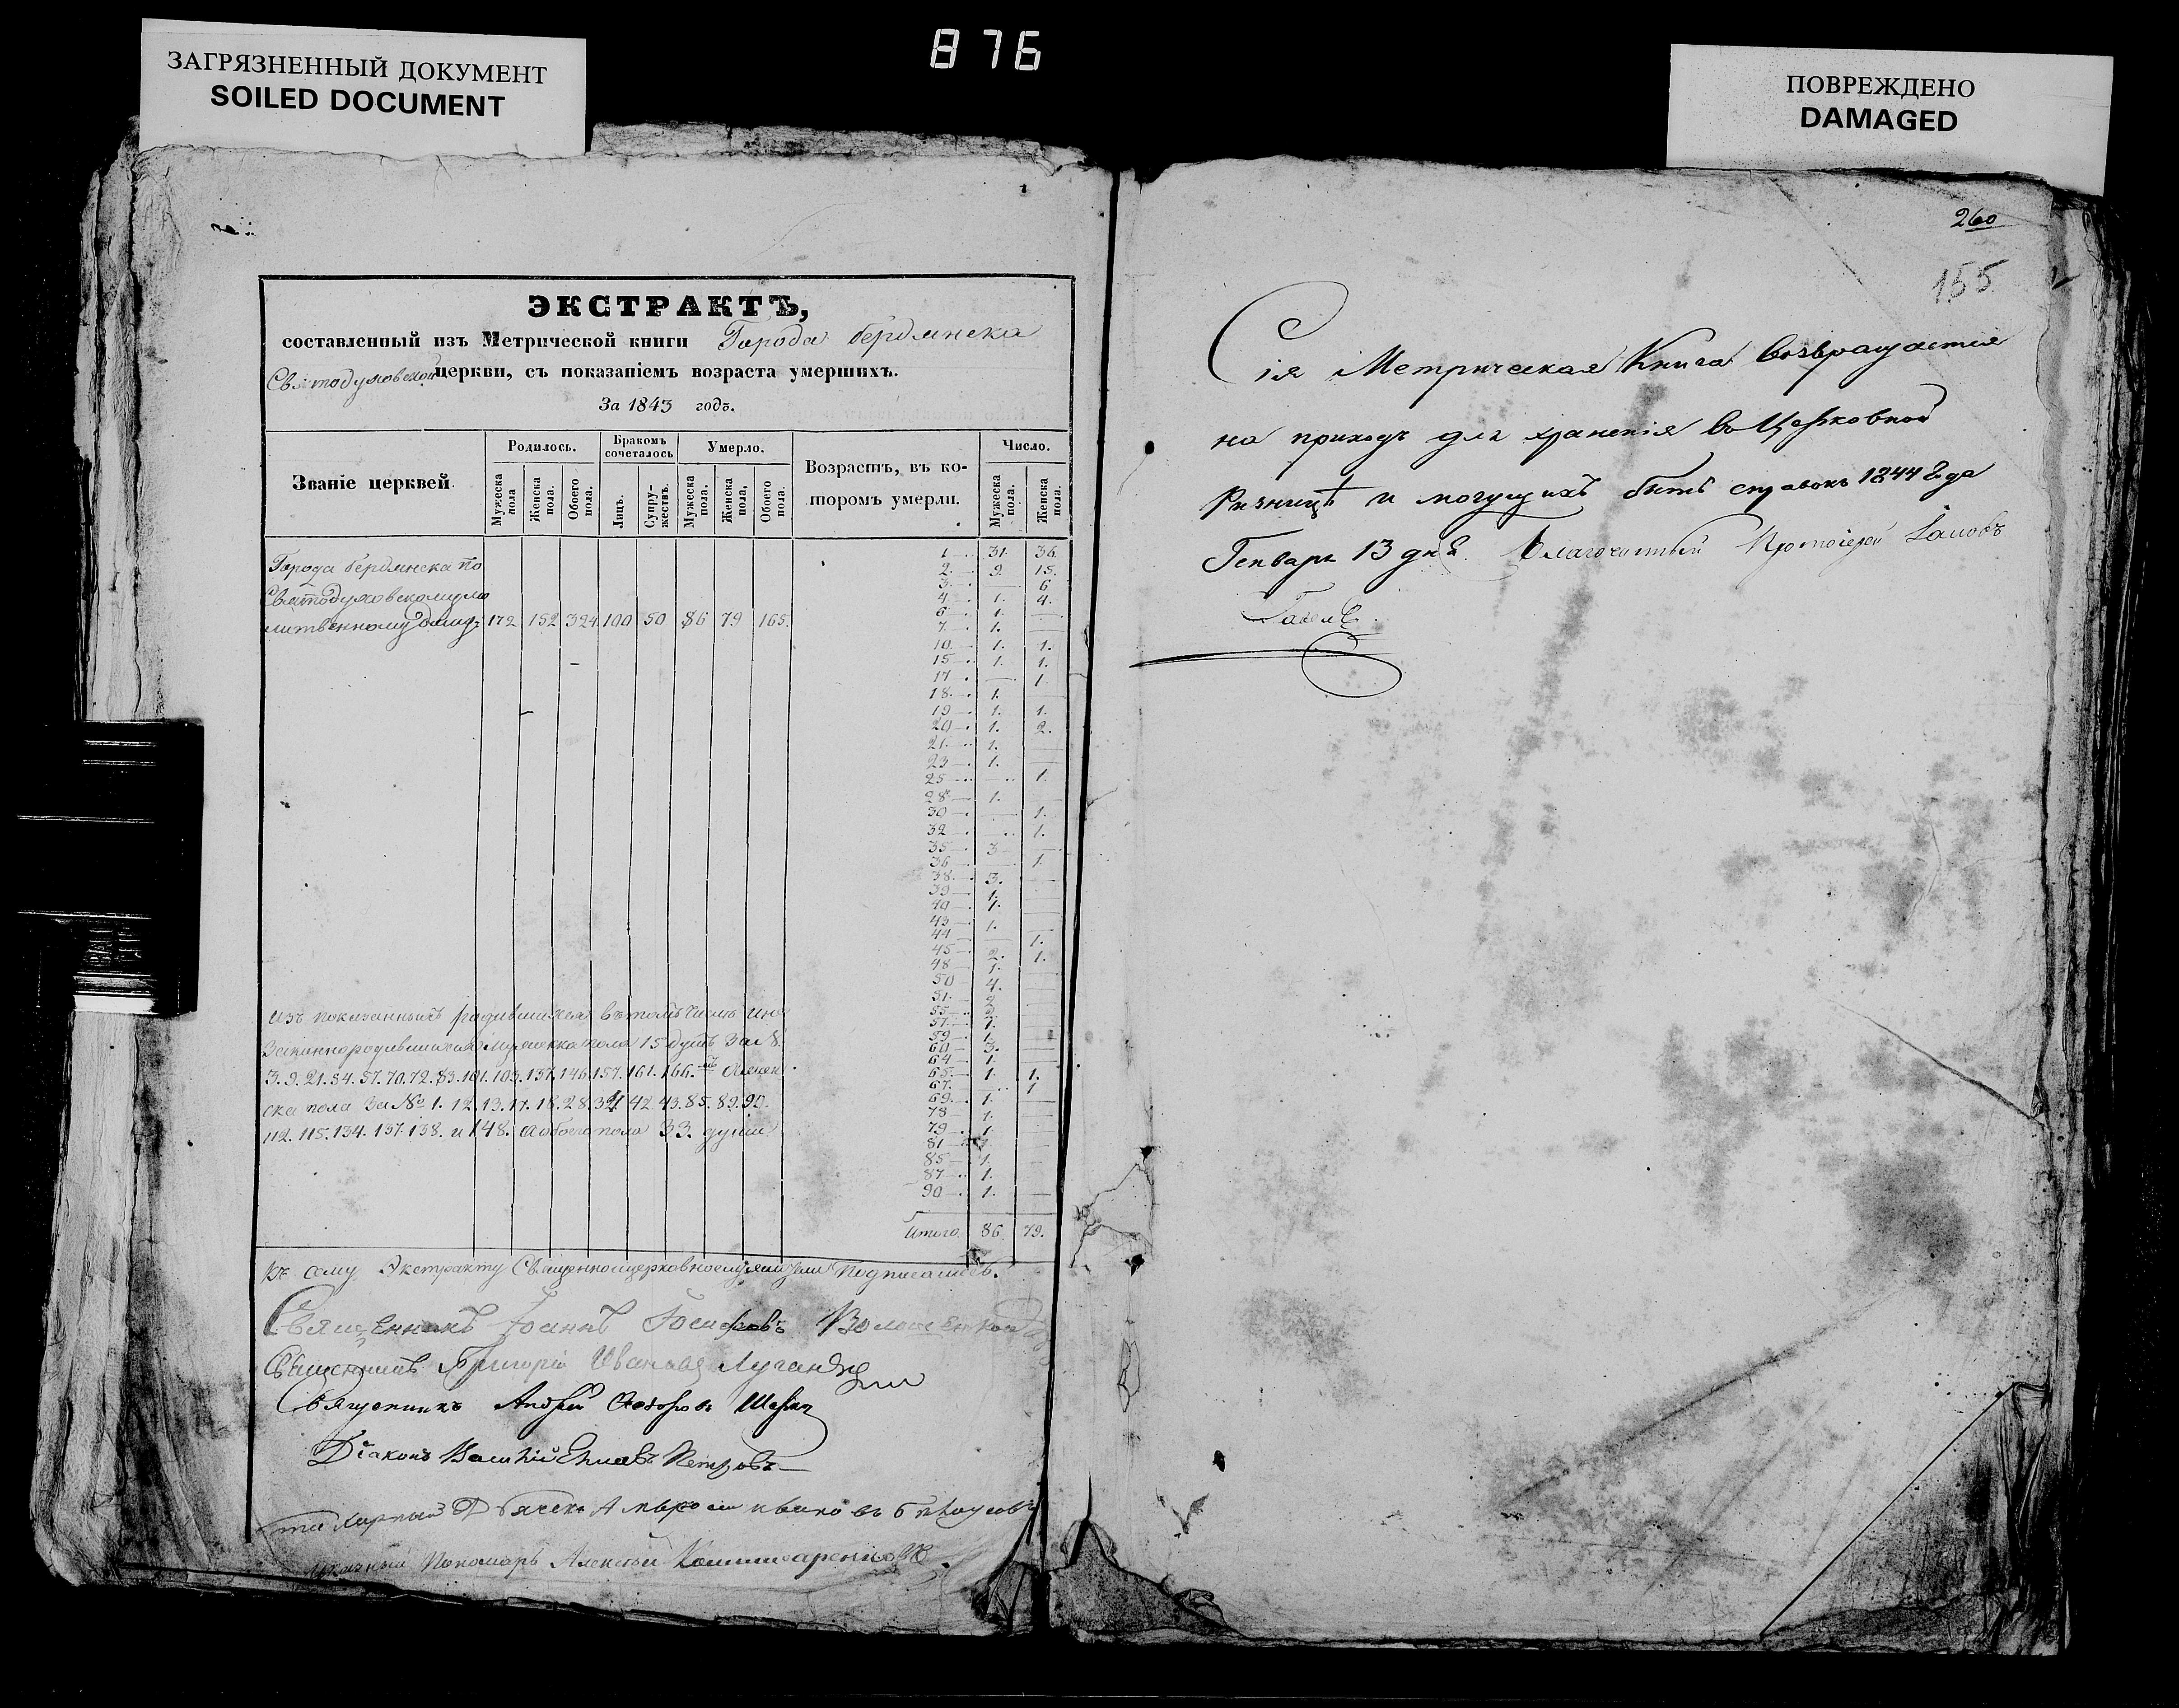 876
ЗАГРЯЗНЕННЫЙ ДОКУМЕНТ
SOILED DOCUMENT
ПОВРЕЖДЕНО
DAMAGED
ЭКСТРАКТЪ,
составленный изъ Метрической книги Города Бердянска
Святодуховской церкви, съ показаніемъ возраста умершихъ.
За 1843 годъ.
Званіе церквей.
Родилось.
Бракомъ сочеталось
Умерло.
Возрастъ, въ котором умерли.
Число.
Мужеска пола
Женска пола.
Обоего пола.
Лицъ.
Супружествъ.
Мужеска пола.
Женска пола,
Обоего пола.
Мужеска пола.
Женска пола.
Города Бердянска по
Святодуховскому мо
литвенному дому 172 152 324 100 50 86 79 165.
1 31. 36.
2. 9. 15.
3. — 6
4 1. 4.
6 1. —
7 1. —
10. 1. 1.
15 1. 1.
17 — 1
18. 1. —
19 1. 1.
20 1. 2.
21. 1. —
23 1. —
25 — 1.
28 1. —
30 — 1.
32 — 1.
35 3 —
36 — 1.
38. 3. —
39 1. —
40 1. —
43 1. —
44 — 1.
45 2. 1.
48 1. —
50 4. —
51. 2 —
55 2. —
57. 1. —
59 1. —
60 3. —
64 1. —
65. 1. 1.
67. — 1
69. 1. —
78 1. —
79 1. —
81
85 1. —
87 1.
90 1. —
Итого. 86. 79.
Изъ показанныхъ родившихся въ томъ числѣ
мужеска пола 15 душъ За №
3. 9. 21. 54. 57. 70. 72. 83. 101. 109. 137. 146. 157. 161. 166. а жен
ска пола За № 1. 12. 13. 17. 18. 28. 34 42 43. 85. 89. 90.
112. 115. 134. 137. 138. и 148. а обоего пола 33. души
Къ сему Экстракту Священноцерковнослужители Подписались.
Священникъ Іоаннъ Іосифовъ
Священникъ Григорій Ивановъ
Священникъ Андрей Федоровъ
Діаконъ Василій Петровъ
Пономарь Алексѣй
260
155
Сія Метрическая Книга возвращается
на приходъ для храненія въ Церковной
Ризницѣ и могущихъ быть справокъ 1844 года
Генваря 13 дня. Благочинный Протоіерей